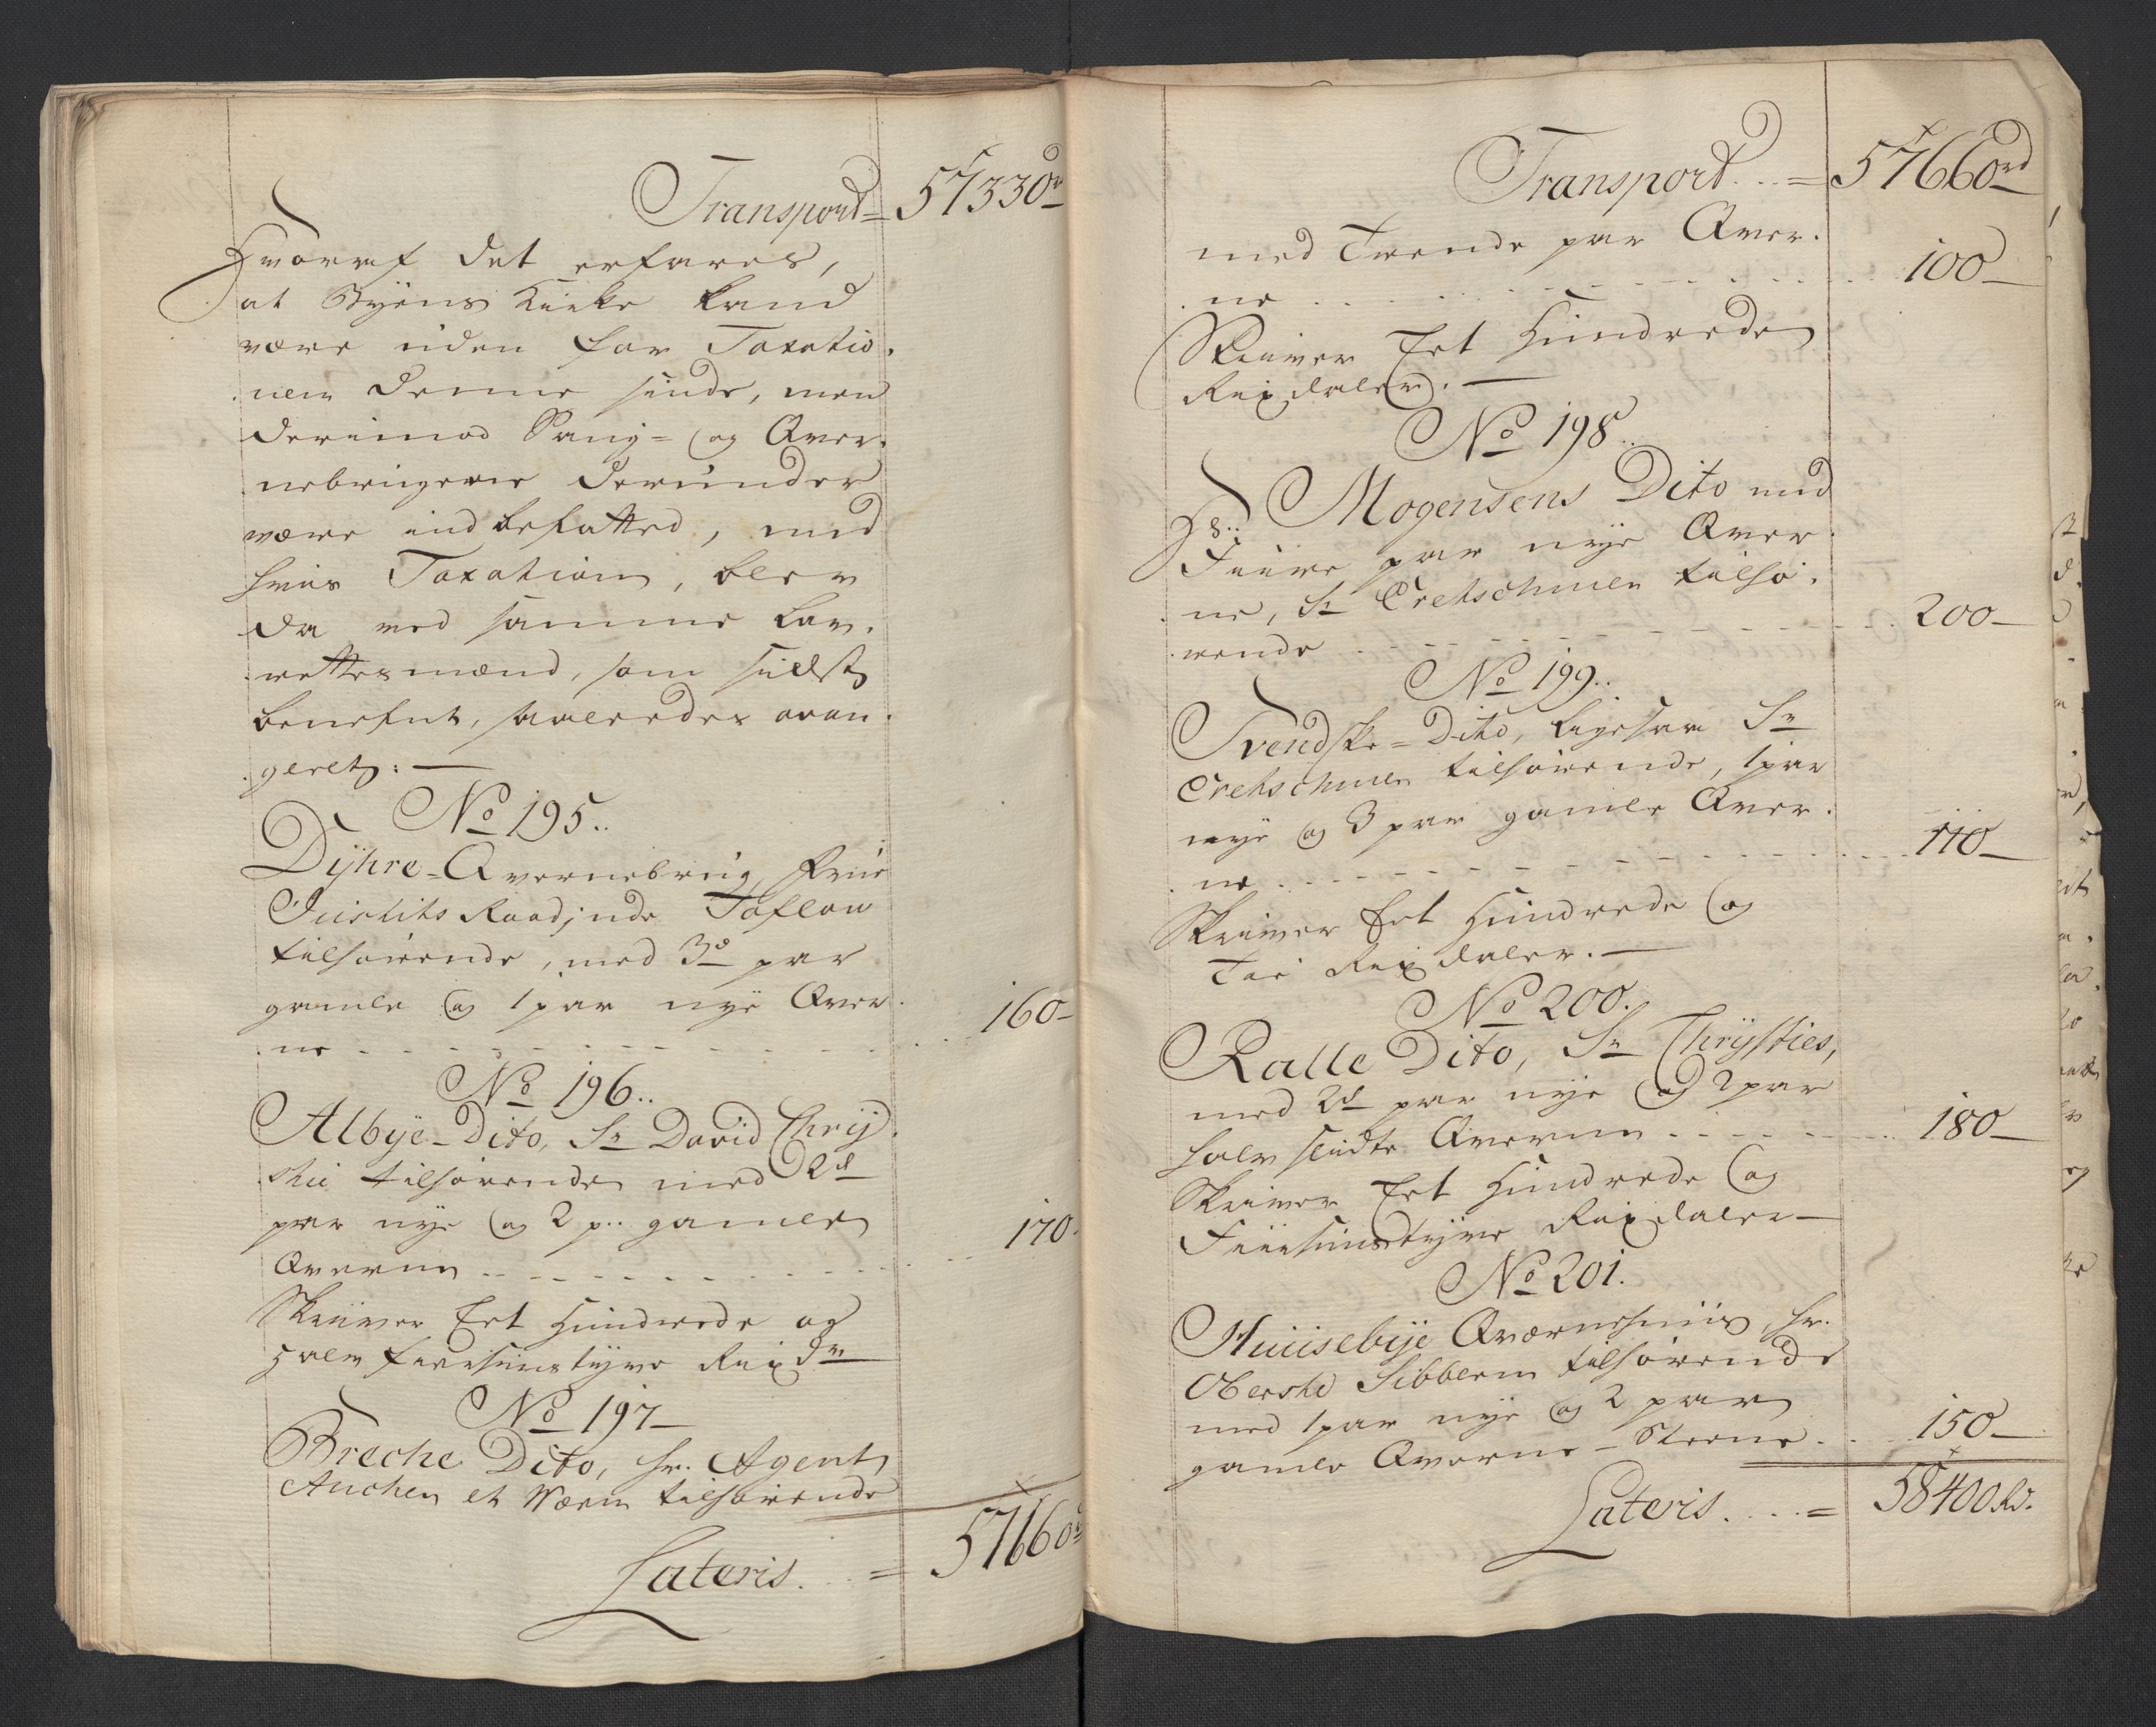 Transport = 57330rd
Hvoraf det erfares,
at Byens Kirke kand
være uden for Taxatio-
nen denne sinde, men
derimod Saug- og Qver-
nebrugene derunder
være indbefatted, med
hvis Taxation, blev
da ved samme Lav-
rettesmænd, som sidst
benefnt, saaledes avan-
geret:
No 195..
Dyhre-Qvernebrug, Frue
Justits Raadinde
tilhørende, med 3de par
gamle og 1 par nye Qver-
ne 160
No 196..
Albye-Dito, Sr David Chry-
stie tilhørende med 2de
par nye og 2 p.. gamle
Qverne 170
Skriver Eet Hundrede og
Halv firesindstyve Rixdr
No 197
Breche Dito, hr. Agent
Anchen et Værn tilhørende
Lateris = 57660
Transport = 57660rd
med Trende par Qver-
ne 100
Skriver Eet Hundrede
Rixdaler.
No 198..
Hr.. Mogensens Dito med
Fiire par nye Qver-
ne, Sr Cretschmer tilhø-
rende 200
No 199..
Svendske-Dito, ligesom Sr
Cretschmer tilhørende, 1 par
nye og 3 par gamle Qver-
ne 110
Skriver Eet Hundrede og
Tie Rixdaler.
No 200.
Ralle Dito, Sr Chrysties,
med 2de par nye og 2 par
halv slidte Qverne 180
Skriver Eet Hundrede og
Fiirsindstyve Rixdaler
No 201.
Huusebye Qværnehuus, hr.
Oberste Sibbern tilhørende
med 1 par nye og 2 par
gamle Qverne-Steene 150
Lateris = 58400 Rd.